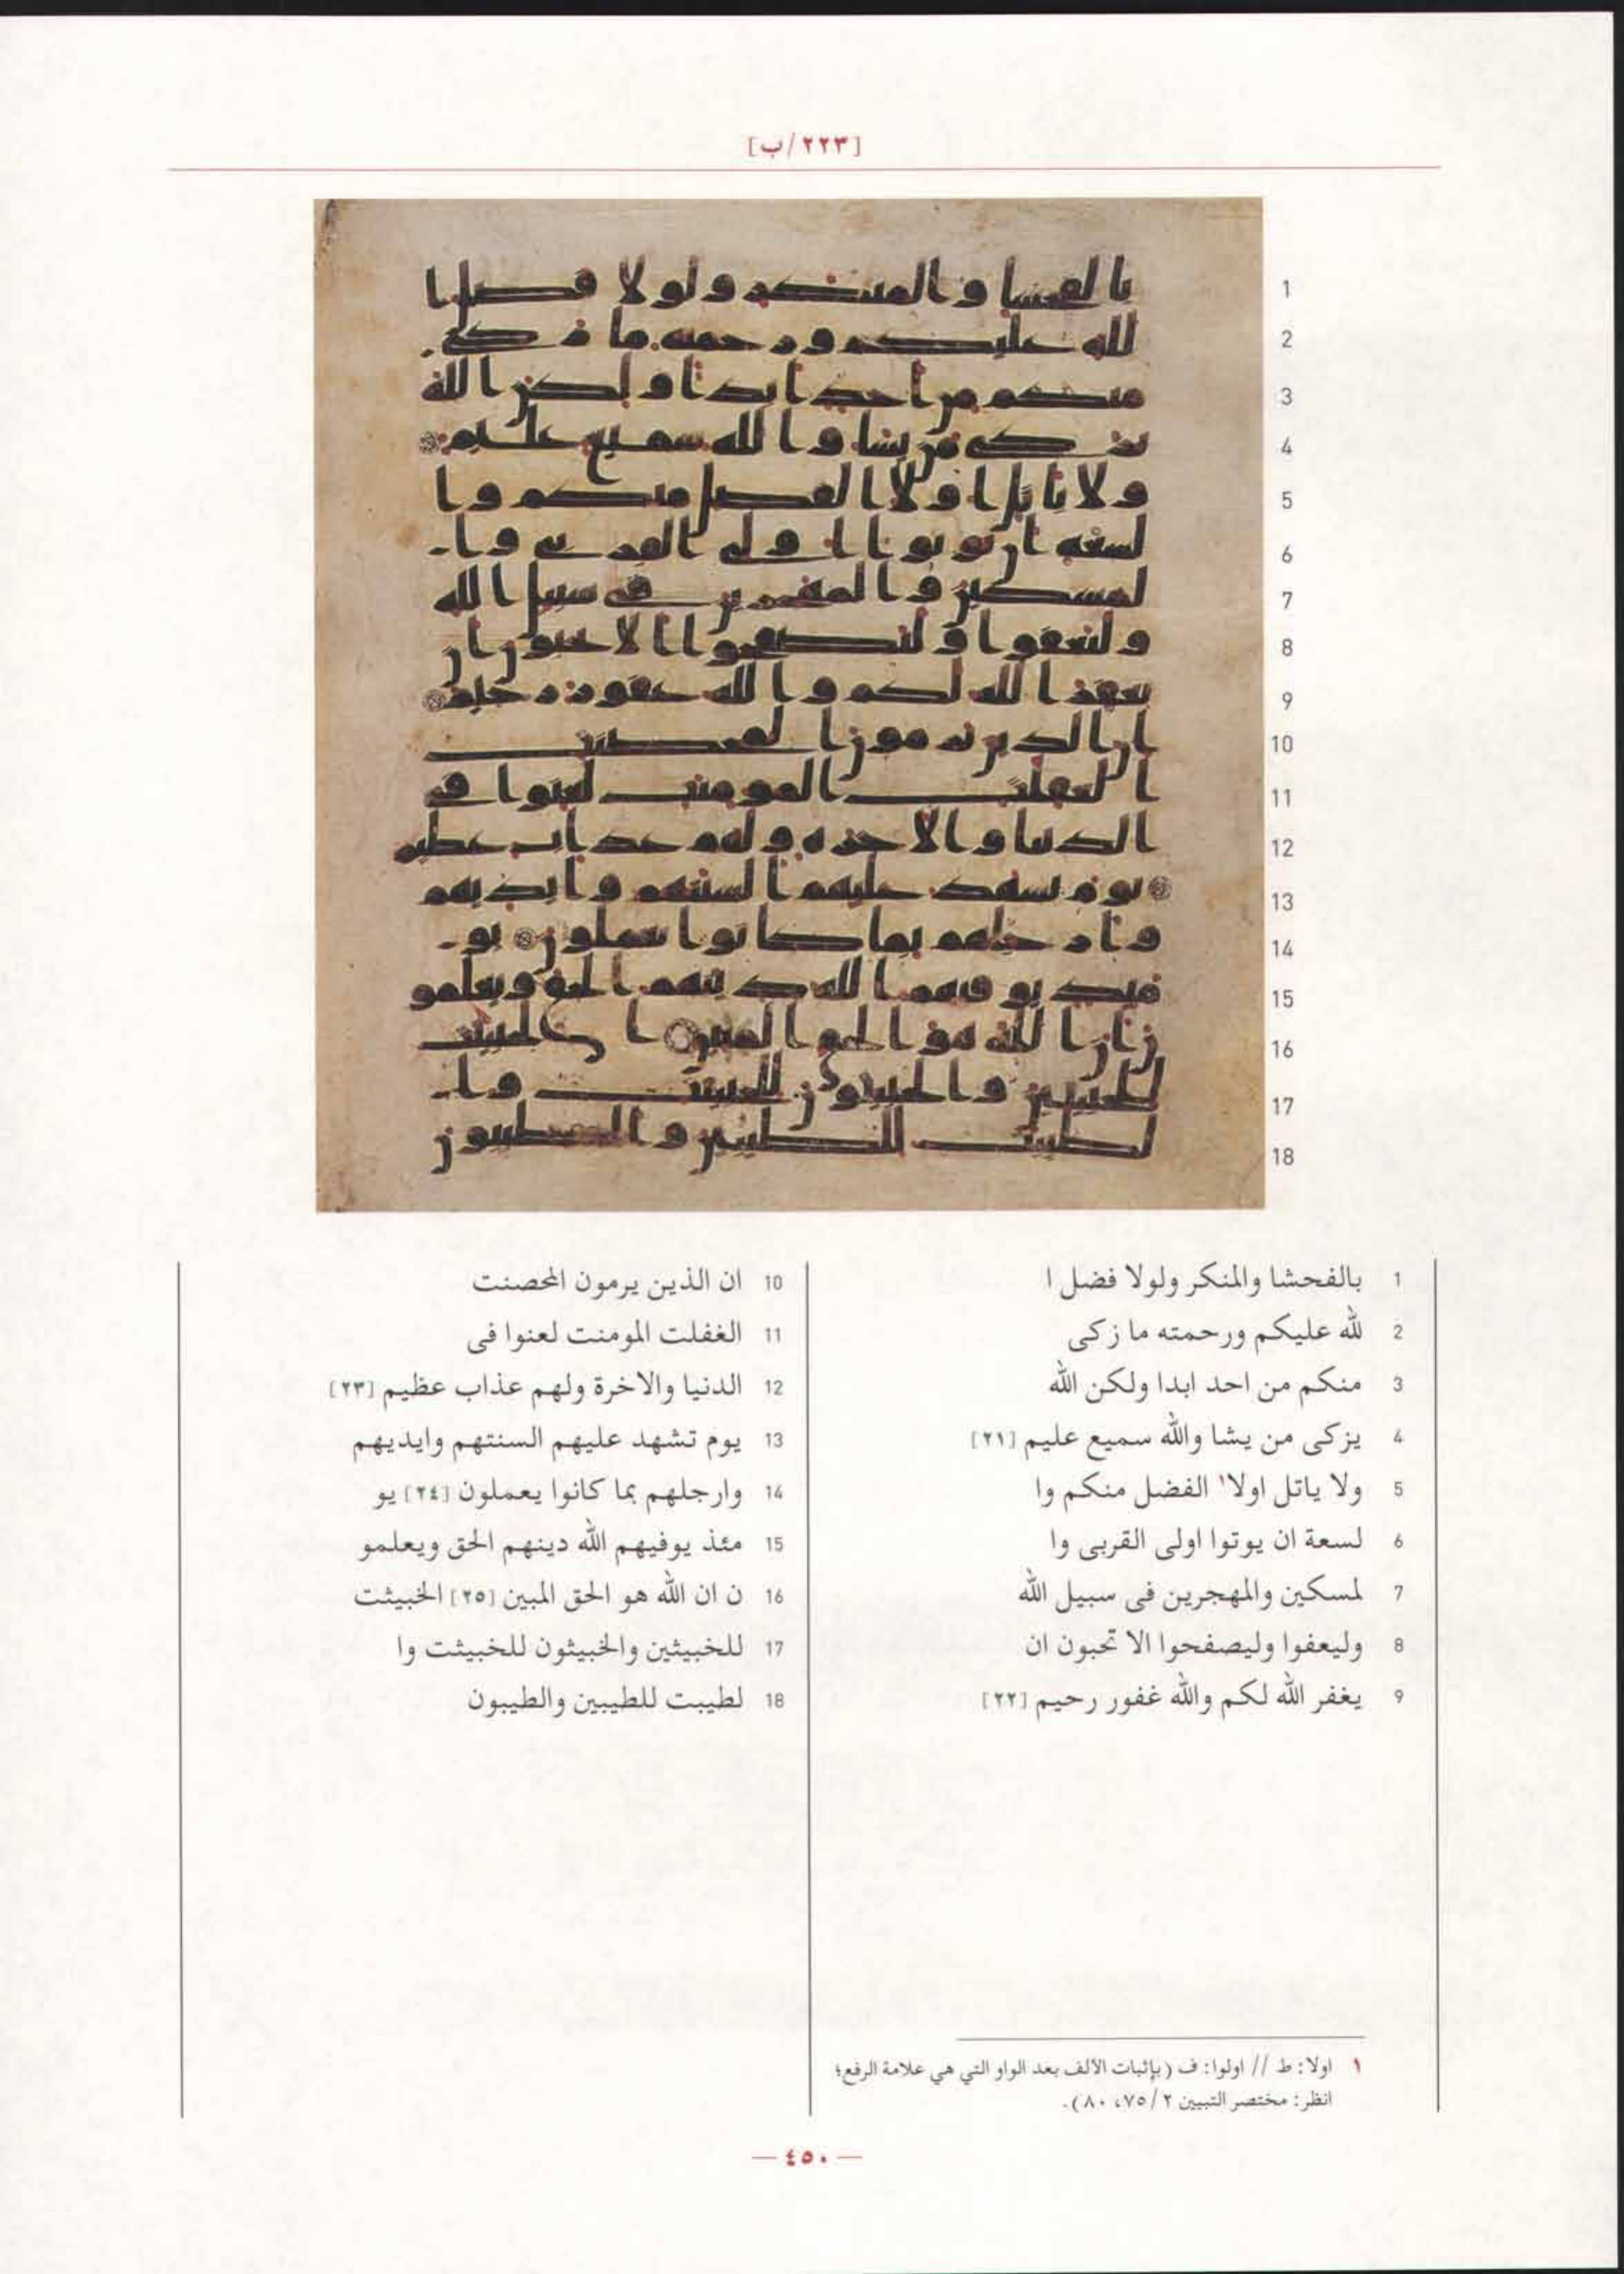 [٢٢٣/ب]
1 بالفحشا والمنكر ولولا فضل ا
2 لله عليكم ورحمته ما زكى
3 منكم من احد ابدا ولكن الله
4 يزكى من يشا والله سميع عليم [٢١]
5 ولا ياتل اولا١ الفضل منكم وا
6 لسعة ان يوتوا اولى القربى وا
7 لمسكين والمهجرين فى سبيل الله
8 وليعفوا وليصفحوا الا تحبون ان
9 يغفر الله لكم والله غفور رحيم [٢٢]
10 ان الذين يرمون المحصنت
11 الغفلت المومنت لعنوا فى
12 الدنيا والاخرة ولهم عذاب عظيم [٢٣]
13 يوم تشهد عليهم السنتهم وايديهم
14 وارجلهم بما كانوا يعملون [٢٤] يو
15 مئذ يوفيهم الله دينهم الحق ويعلمو
16 ن ان الله هو الحق المبين [٢٥] الخبيثت
17 للخبيثين والخبيثون للخبيثت وا
18 لطيبت للطيبين والطيبون
١ اولا: ط // اولوا: ف (بإثبات الألف بعد الواو التي هي علامة الرفع؛
انظر: مختصر التبيين ٢/ ٧٥، ٨٠).
— ٤٥٠ —